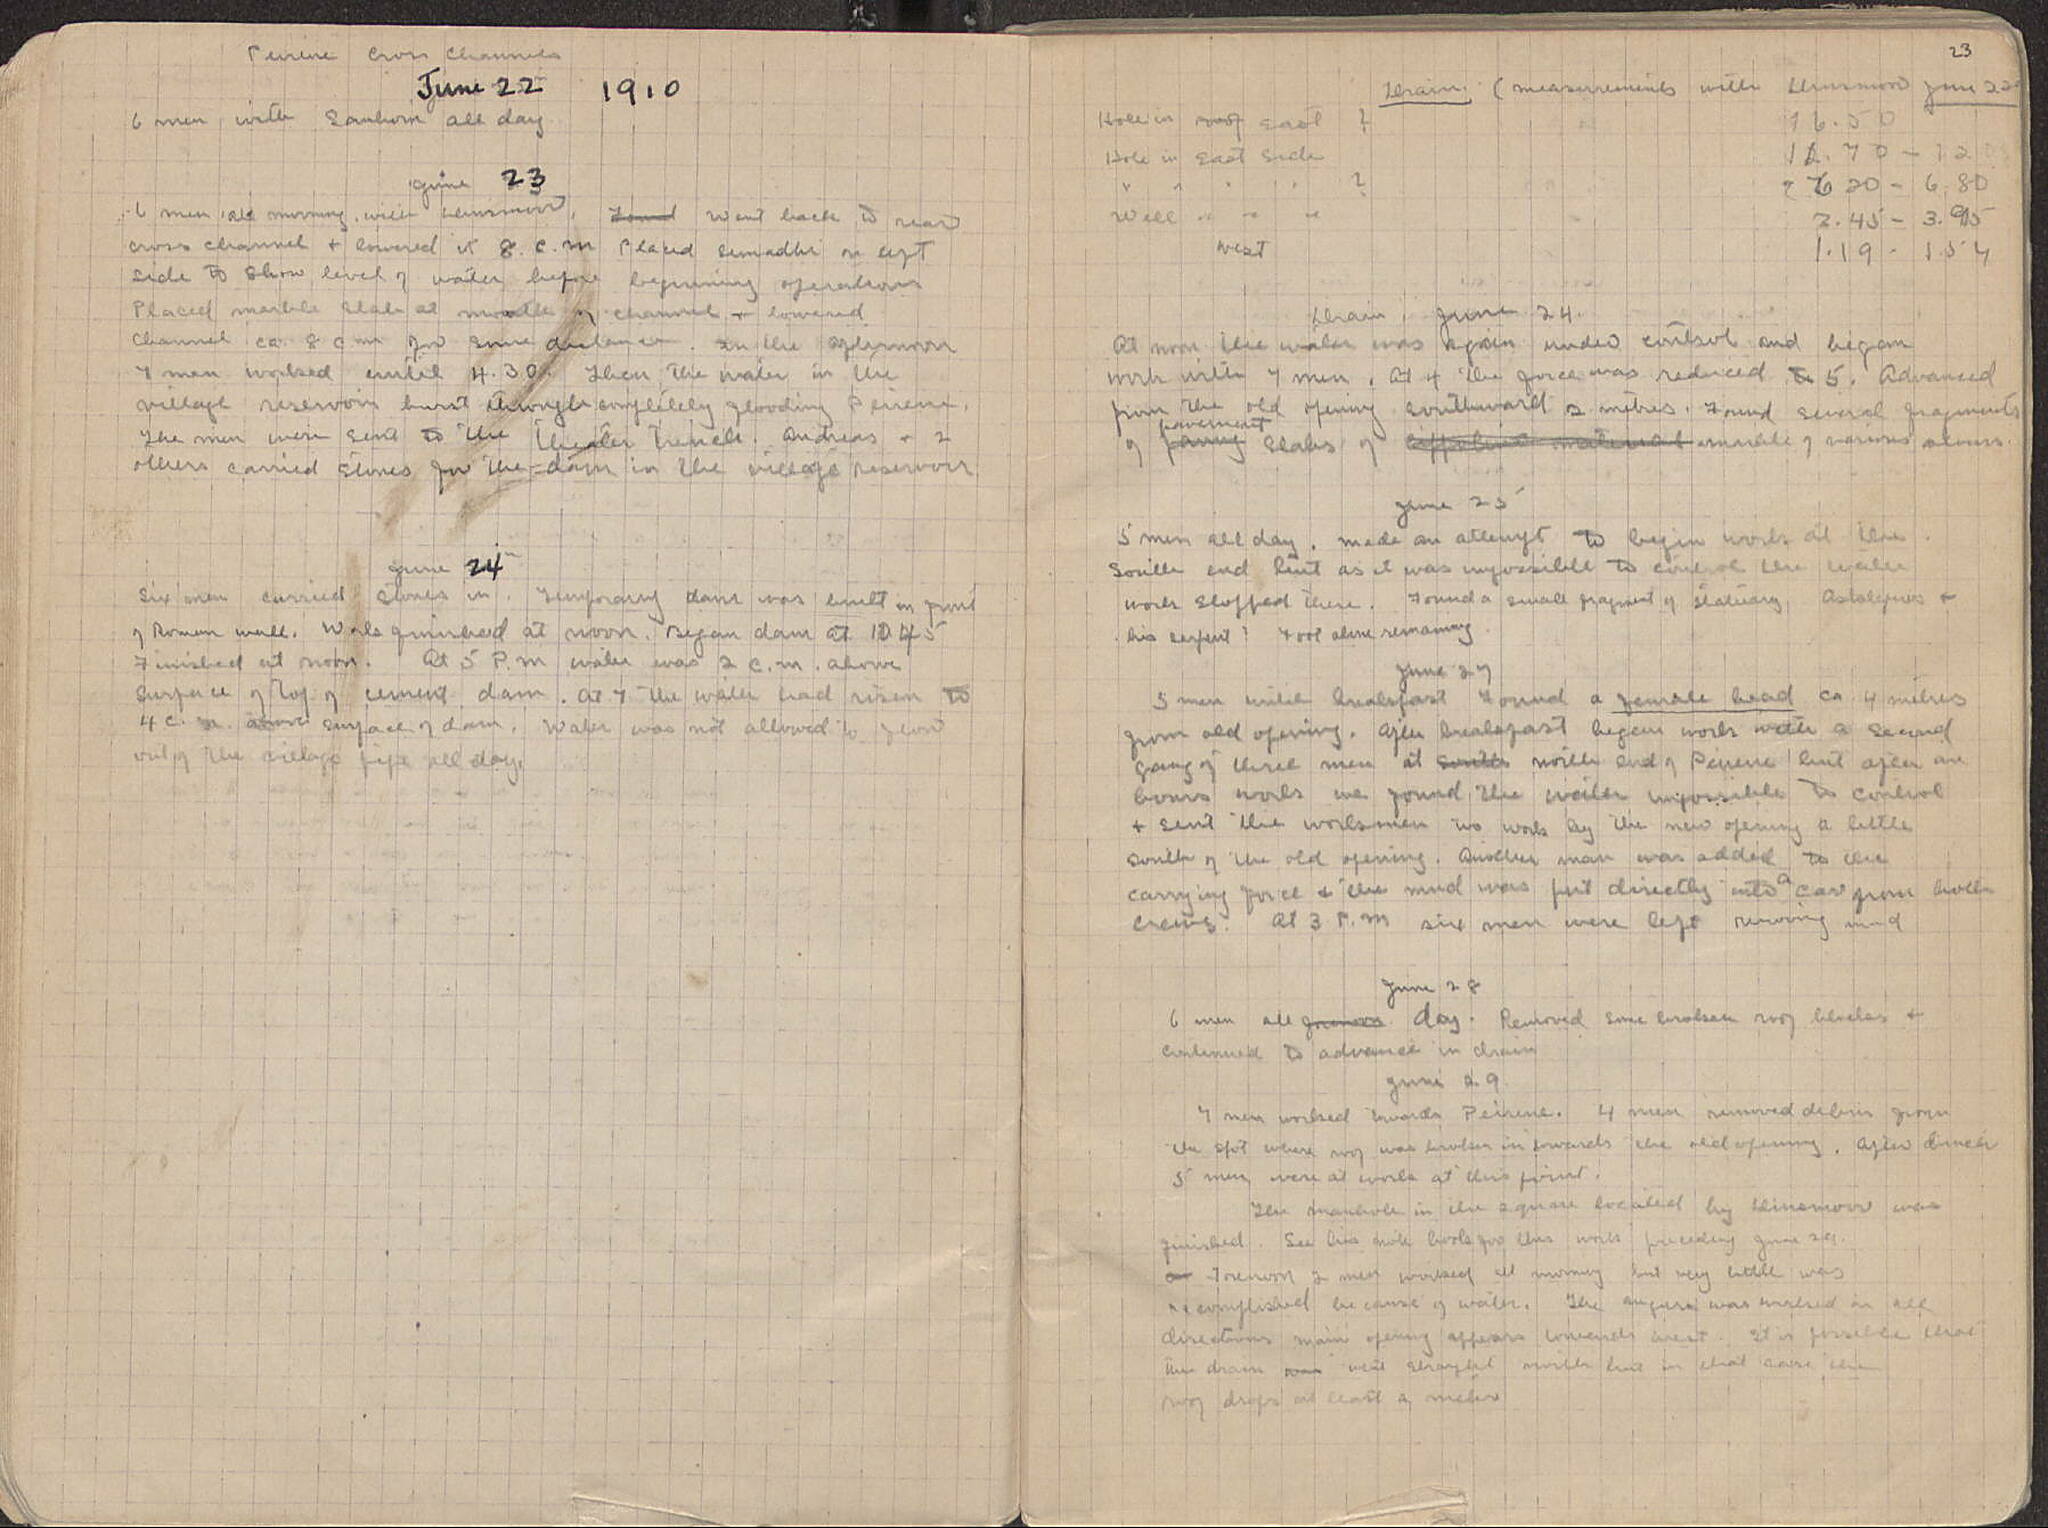 Peirene Cross Channels
June 22 1910
6 men with Sanborn all day
June 23
6 men all morning with Dinsmoor. Found Went back to rear
cross channel + lowered it 8. c.m Placed semadhi on left
side to show level of water before beginning operations
Placed marble slab at mouth of channel + lowered
channel ca 8 cm for some distance. In the afternoon
7 men worked until 4.30. Then the water in the
village reservoir burst through completely flooding Peirene.
The men were sent to the theater trench. Andreas + 2
others carried stones for the dam in the village reservoir
June 24th
Six men carried stones in. Temporary dam was built in front
of Roman wall. Work finished at noon. Began dam at 10 45
Finished at noon. At 5 P.m water was 2 c.m. above
surface of top of cement dam. At 7 the water had risen to
4 c.m. above surface of dam. Water was not allowed to flow
out of the village pipe all day.
23
Drain. (measurements with Dinsmoor June 22
Hole in roof East ? 16.50
Hole in East side 12.70 - 12
" " " " ? 6 20 - 6.80
Well " " " 3.45 - 3.95
West 1.19 - 1.54
Drain. June 24.
At noon the water was again under control and began
work with 7 men. At 4 the force was reduced to 5. Advanced
from the old opening southward 2 metres. Found several fragments
of paving pavement slabs of marble of various colours.
June 25
5 men all day. Made an attempt to begin work at the
South end but as it was impossible to control the water
work stopped there. Found a small fragment of statuary, Asklepios +
his serpent? Foot alone remaining.
June 27
5 men until breakfast Found a female head ca 4 metres
from old opening. After breakfast began work with a second
gang of three men at south north end of Peirene but after an
hours work we found the water impossible to control
+ sent the workmen to work by the new opening a little
south of the old opening. Another man was added to the
carrying force + the mud was put directly into a car from both
crews. At 3 P.m six men were left removing mud
June 28
6 men all forenoon day. Removed some broken roof blocks +
continued to advance in drain
June 29
7 men worked towards Peirene. 4 men removed debris from
the spot where roof was broken in towards the old opening. After dinner
5 men were at work at this point.
The manhole in the square located by Dinsmoor was
finished. See his note book for this work preceding June 29.
Forenoon 2 men worked all morning but very little was
accomplished because of water. The augura was worked in all
directions main opening appears towards west. It is possible that
the drain was went straight north but in that case the
roof drops at least a meter